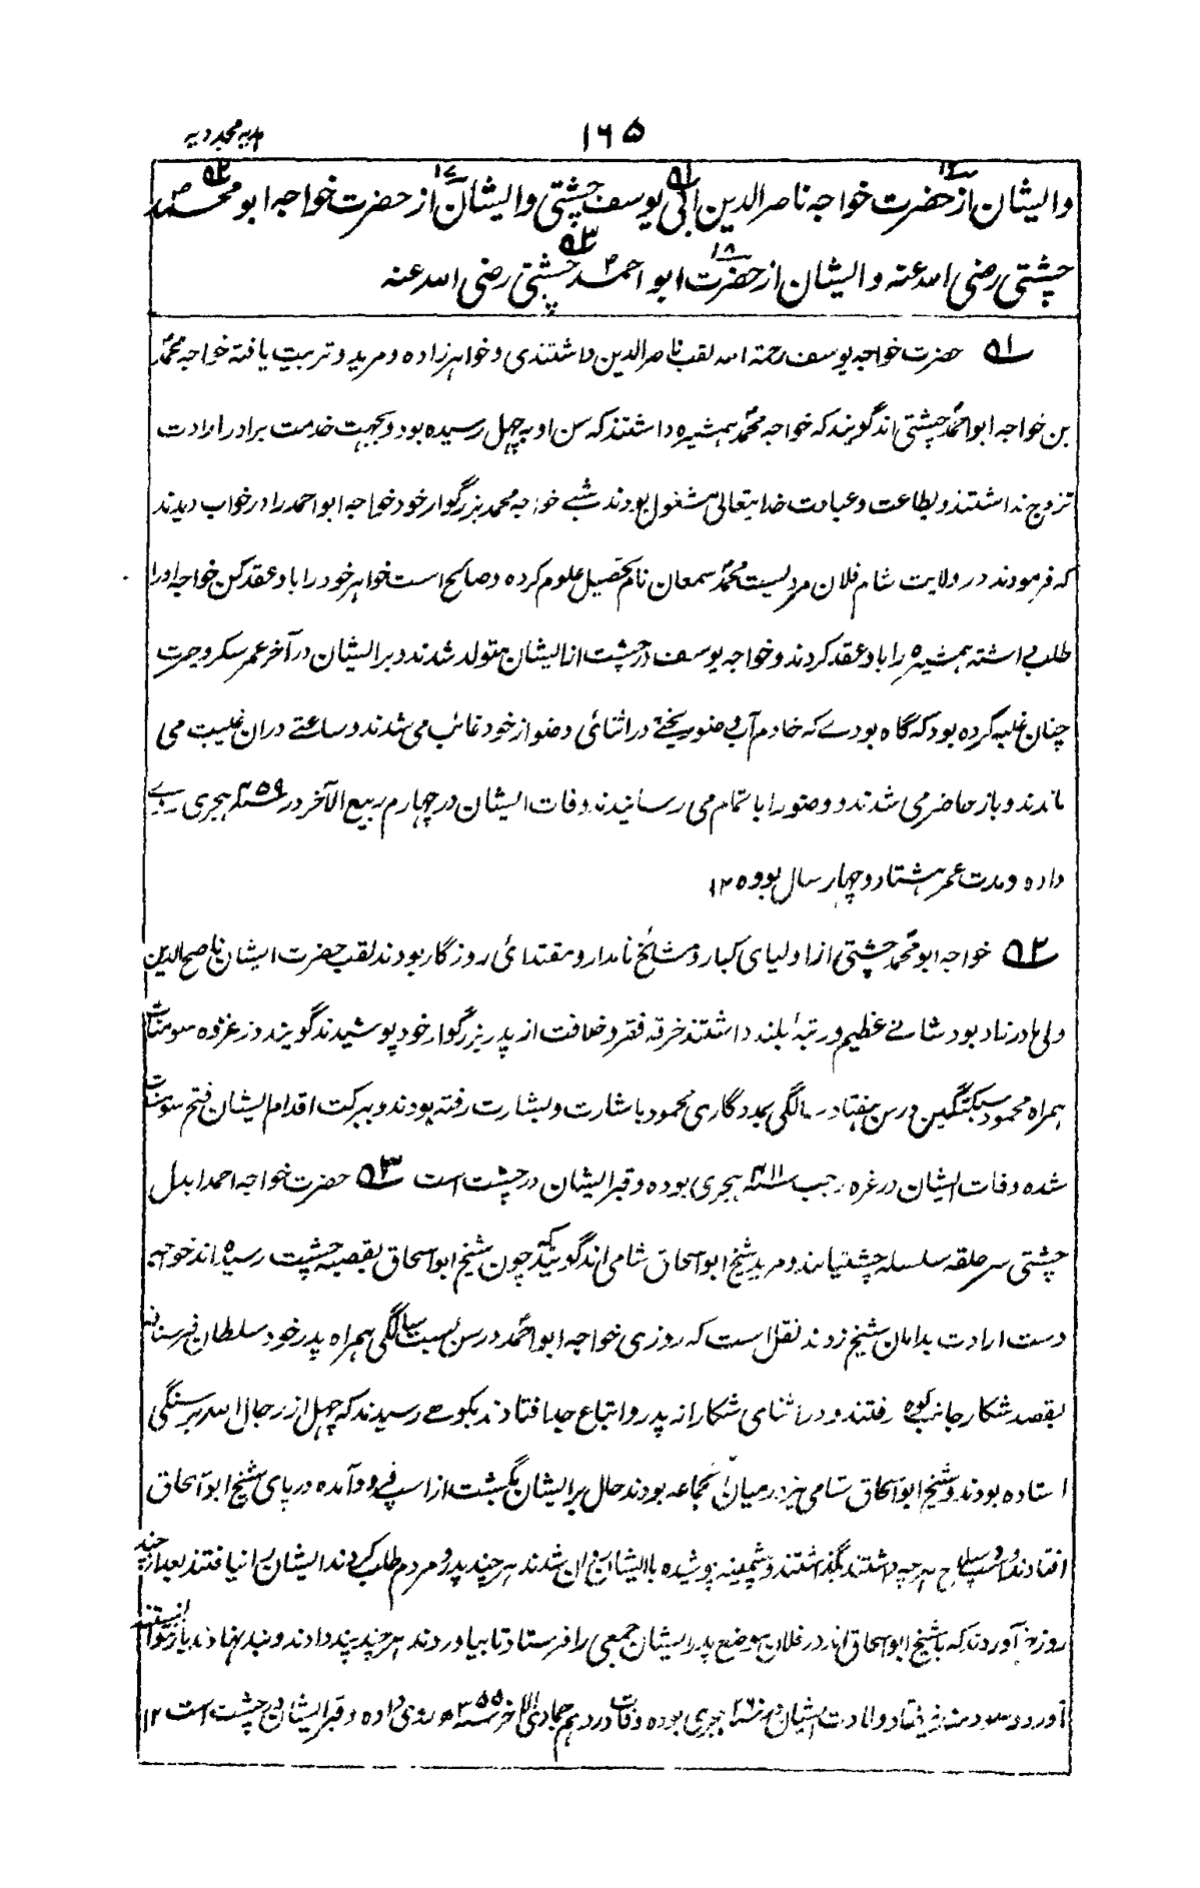 ۱۶۵
ہدیہ مجددیہ
وایشان از حضرت خواجہ ناصر الدین ابی یوسف چشتی وایشان از حضرت خواجہ ابو محمد
چشتی رضی اللہ عنہ وایشان از حضرت ابو احمد چشتی رضی اللہ عنہ
۵۱ حضرت خواجہ یوسف رحمۃ اللہ لقب ناصر الدین داشتندی و خواہر زادہ و مرید و تربیت یافتہ خواجہ محمد
بن خواجہ ابو احمد چشتی اند گویند کہ خواجہ محمد ہمشیرہ داشتند کہ سن او بہ چہل رسیدہ بود و بجہت خدمت برادر ارادت
تزوج نداشتند و بطاعت و عبادت خدایتعالی مشغول بودند شبے خواجہ محمد بزرگوار خود خواجہ ابو احمد را در خواب دیدند
کہ فرمودند در ولایت شام فلان مردیست محمد سمعان نام تحصیل علوم کردہ و صالح است خواہر خود را باو عقد کن خواجہ اورا
طلب داشتہ ہمشیرہ را باو عقد کردند و خواجہ یوسف در چشت ازایشان متولد شدند و بر ایشان در آخر عمر سکر و حیرت
چنان غلبہ کردہ بود کہ گاہ بودے کہ خادم آب وضو ریختے در اثنائ وضو از خود غائب می شدند و ساعتے دران غیبت می
ماندند و باز حاضر می شدند و وضو را باتمام می رسانیدند وفات ایشان در چہارم ربیع الآخر در ۴۵۹ ہجری روے
دادہ و مدت عمر ہشتاد و چہار سال بودہ ۱۲
۵۲ خواجہ ابو محمد چشتی از اولیای کبار و مشائخ نامدار و مقتدائ روزگار بودند لقب حضرت ایشان ناصح الدین
ولی مادرزاد بود شانے عظیم و رتبۂ بلند داشتند خرقہ فقر و خلافت از پدر بزرگوار خود پوشیدند گویند در غزوہ سومنات
ہمراہ محمود سبکتگین در سن ہفتاد سالگی بمددگاری محمود باشارت و بشارت رفتہ بودند و ببرکت اقدام ایشان فتح سومنات
شدہ وفات ایشان در غرہ رجب ۴۱۱ ہجری بودہ و قبر ایشان در چشت است ۵۳ حضرت خواجہ احمد ابدال
چشتی سر حلقہ سلسلہ چشتیان اند و مرید شیخ ابو اسحاق شامی اند گویند کہ چون شیخ ابو اسحاق بقصبہ چشت رسیدہ اند خواجہ
دست ارادت بدامان شیخ زدند نقل است کہ روزی خواجہ ابو احمد در سن بست سالگی ہمراہ پدر خود سلطان فرسنافہ
بقصد شکار جانب کوہ رفتند و در اثنای شکار از پدر و اتباع جدا افتادند بکوہے رسیدند کہ چہل از رجال اللہ بر سنگی
استادہ بودند و شیخ ابو اسحاق شامی نیز در میان آنجماعہ بودند حال بر ایشان بگشت از اسپ فرود آمدہ در پای شیخ ابو اسحاق
افتادند و اسپ و سلاح ہر چہ داشتند بگذاشتند و پشمینہ پوشیدہ با ایشان روان شدند ہر چند پدر و مردم طلب کردند ایشان را نیافتند بعد از چند
روز خبر آوردند کہ با شیخ ابو اسحاق اند در فلان موضع پدر ایشان جمعی را فرستاد تا بیاوردند ہر چند پند دادند و بند نہادند باز نتوانستند
آورد و سودمند نیفتاد ولادت ایشان در ۲۶۰ ہجری بودہ وفات در دہم جمادی الآخر ۳۵۵ روی دادہ و قبر ایشان در چشت است ۱۲